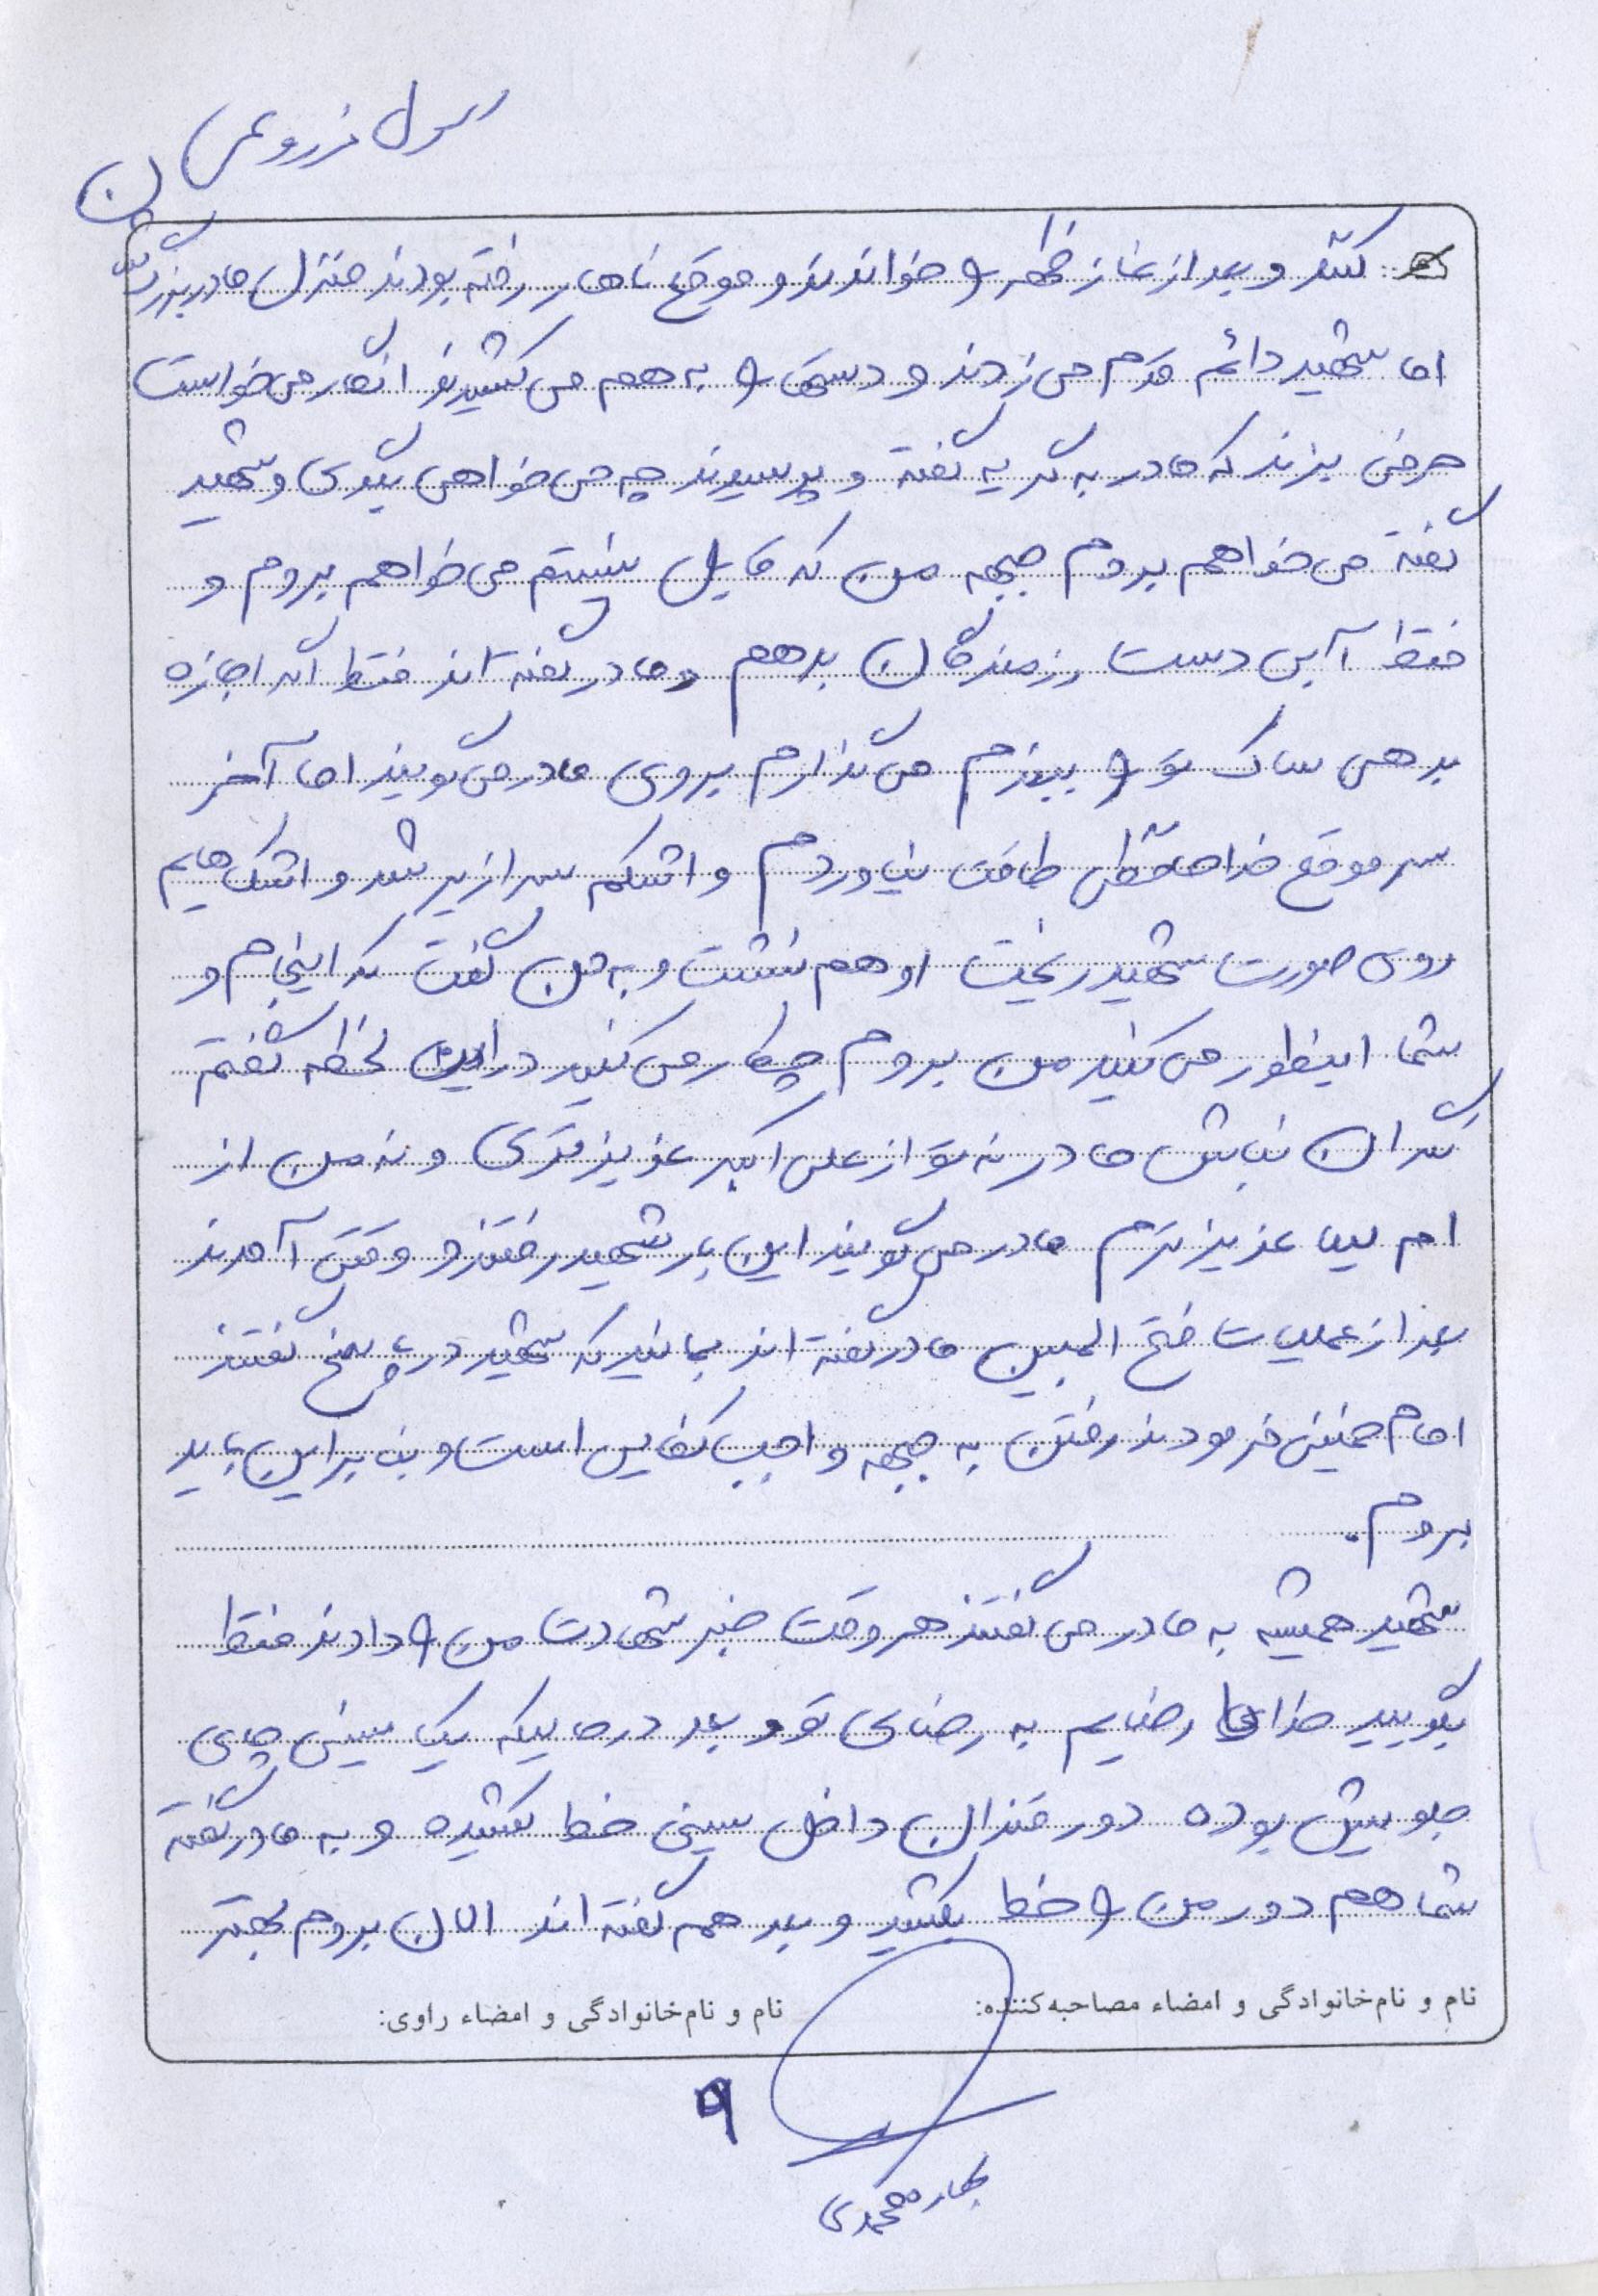 رسول فزروعی
ن
کنند و بعد از نماز ظهر را خواندند و موقع ناهار رفته بودند منزل مادربزرگش
اما شهید دائم قدم می‌زدند و دستها را به هم می‌کشیدند انگار می‌خواست
حرفی بزند که مادر به گریه گفته و پرسیدند چه می‌خواهی بگوی و شهید
گفته می‌خواهم بروم جبهه من که قابل نیستم می‌خواهم بروم و
فقط آبی دست رزمندگان بدهم و مادر گفته‌اند فقط اگر اجازه
بدهی ساک تو را ببندم می‌گذارم بروی مادر می‌گویند اما آخر
سر موقع خداحافظی طاقت نیاوردم و اشکم سرازیر شد و اشک‌هایم
روی صورت شهید ریخت او هم نشست و به من گفت که اینجام و
شما اینطور می‌کنید من بروم چکار می‌کنید در این لحظه گفتم
نگران نباش مادر نه تو از علی اکبر عزیزتری و نه من از
ام لیلا عزیزترم مادر می‌گویند این بار شهید رفتند و وقتی آمدند
بعد از عملیات فتح المبین مادر گفته‌اند بمانید که شهید در پاسخ گفتند
امام خمینی فرمودند رفتن به جبهه واجب کفایی است و بنابراین باید
بروم.
شهید همیشه به مادر می‌گفتند هر وقت خبر شهادت من را دادند فقط
بگویید خدایا رضایم به رضای تو و بعد در حالیکه یک سینی چای
جلویش بوده دور قندان داخل سینی خط کشیده و به مادر گفته
شما هم دور من را خط بکشید و بعد هم گفته‌اند الان بروم بهتر
نام و نام‌خانوادگی و امضاء مصاحبه‌کننده: نام و نام‌خانوادگی و امضاء راوی:
۹
بهاره محمدی